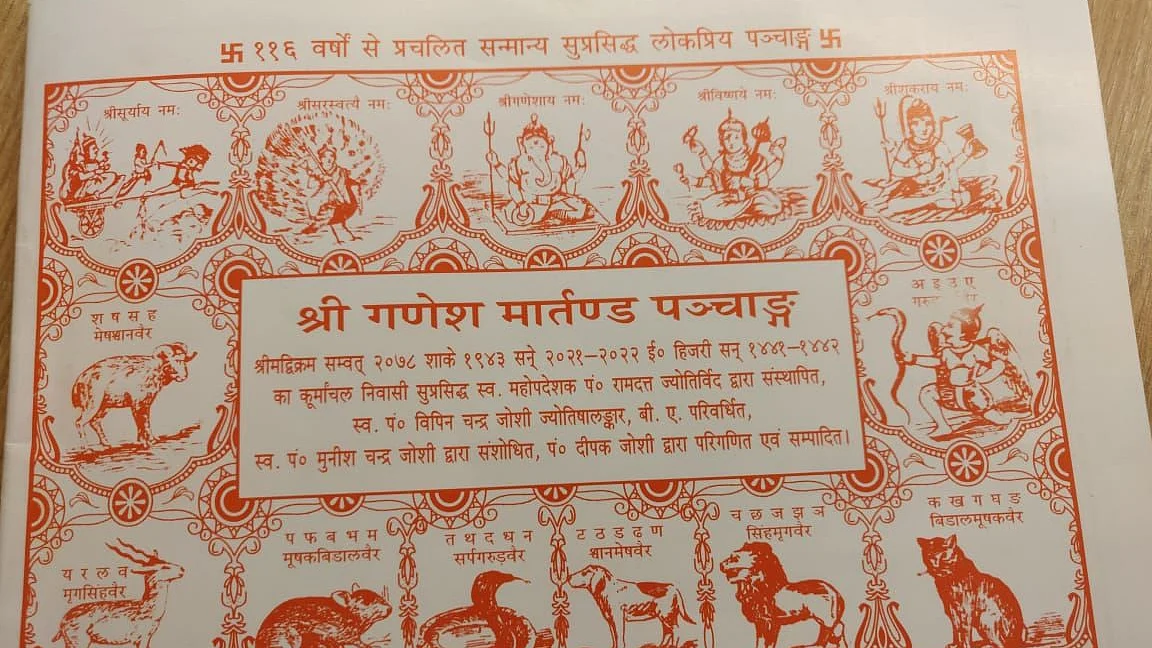 卐 ११६ वर्षों से प्रचलित सन्मान्य सुप्रसिद्ध लोकप्रिय पञ्चाङ्ग 卐
श्रीसूर्याय नमः
श्रीसरस्वत्यै नमः
श्रीगणेशाय नमः
श्रीविष्णवे नमः
श्रीशंकराय नमः
श ष स ह
मेषश्वानवैर
अ इ उ ए
श्री गणेश मार्तण्ड पञ्चाङ्ग
श्रीमद्विक्रम सम्वत् २०७८ शाके १९४३ सने् २०२१–२०२२ ई० हिजरी सन् १४४१–१४४२
का कूर्मांचल निवासी सुप्रसिद्ध स्व. महोपदेशक पं० रामदत्त ज्योतिर्विद द्वारा संस्थापित,
स्व. पं० विपिन चन्द्र जोशी ज्योतिषालङ्कार, बी. ए. परिवर्धित,
स्व. पं० मुनीश चन्द्र जोशी द्वारा संशोधित, पं० दीपक जोशी द्वारा परिगणित एवं सम्पादित।
य र ल व
मृगसिंहवैर
प फ ब भ म
मूषकबिडालवैर
त थ द ध न
सर्पगरुड़वैर
ट ठ ड ढ ण
श्वानमेषवैर
च छ ज झ ञ
सिंहमृगवैर
क ख ग घ ङ
बिडालमूषकवैर